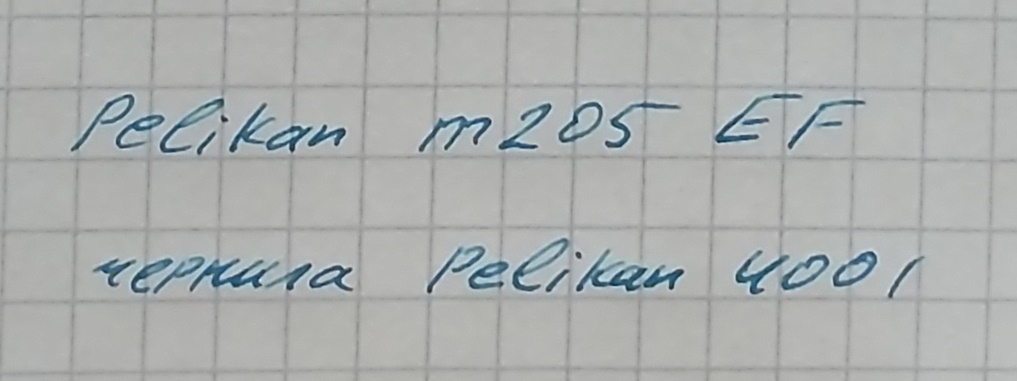 Pelikan m205 EF
чернила Pelikan 4001